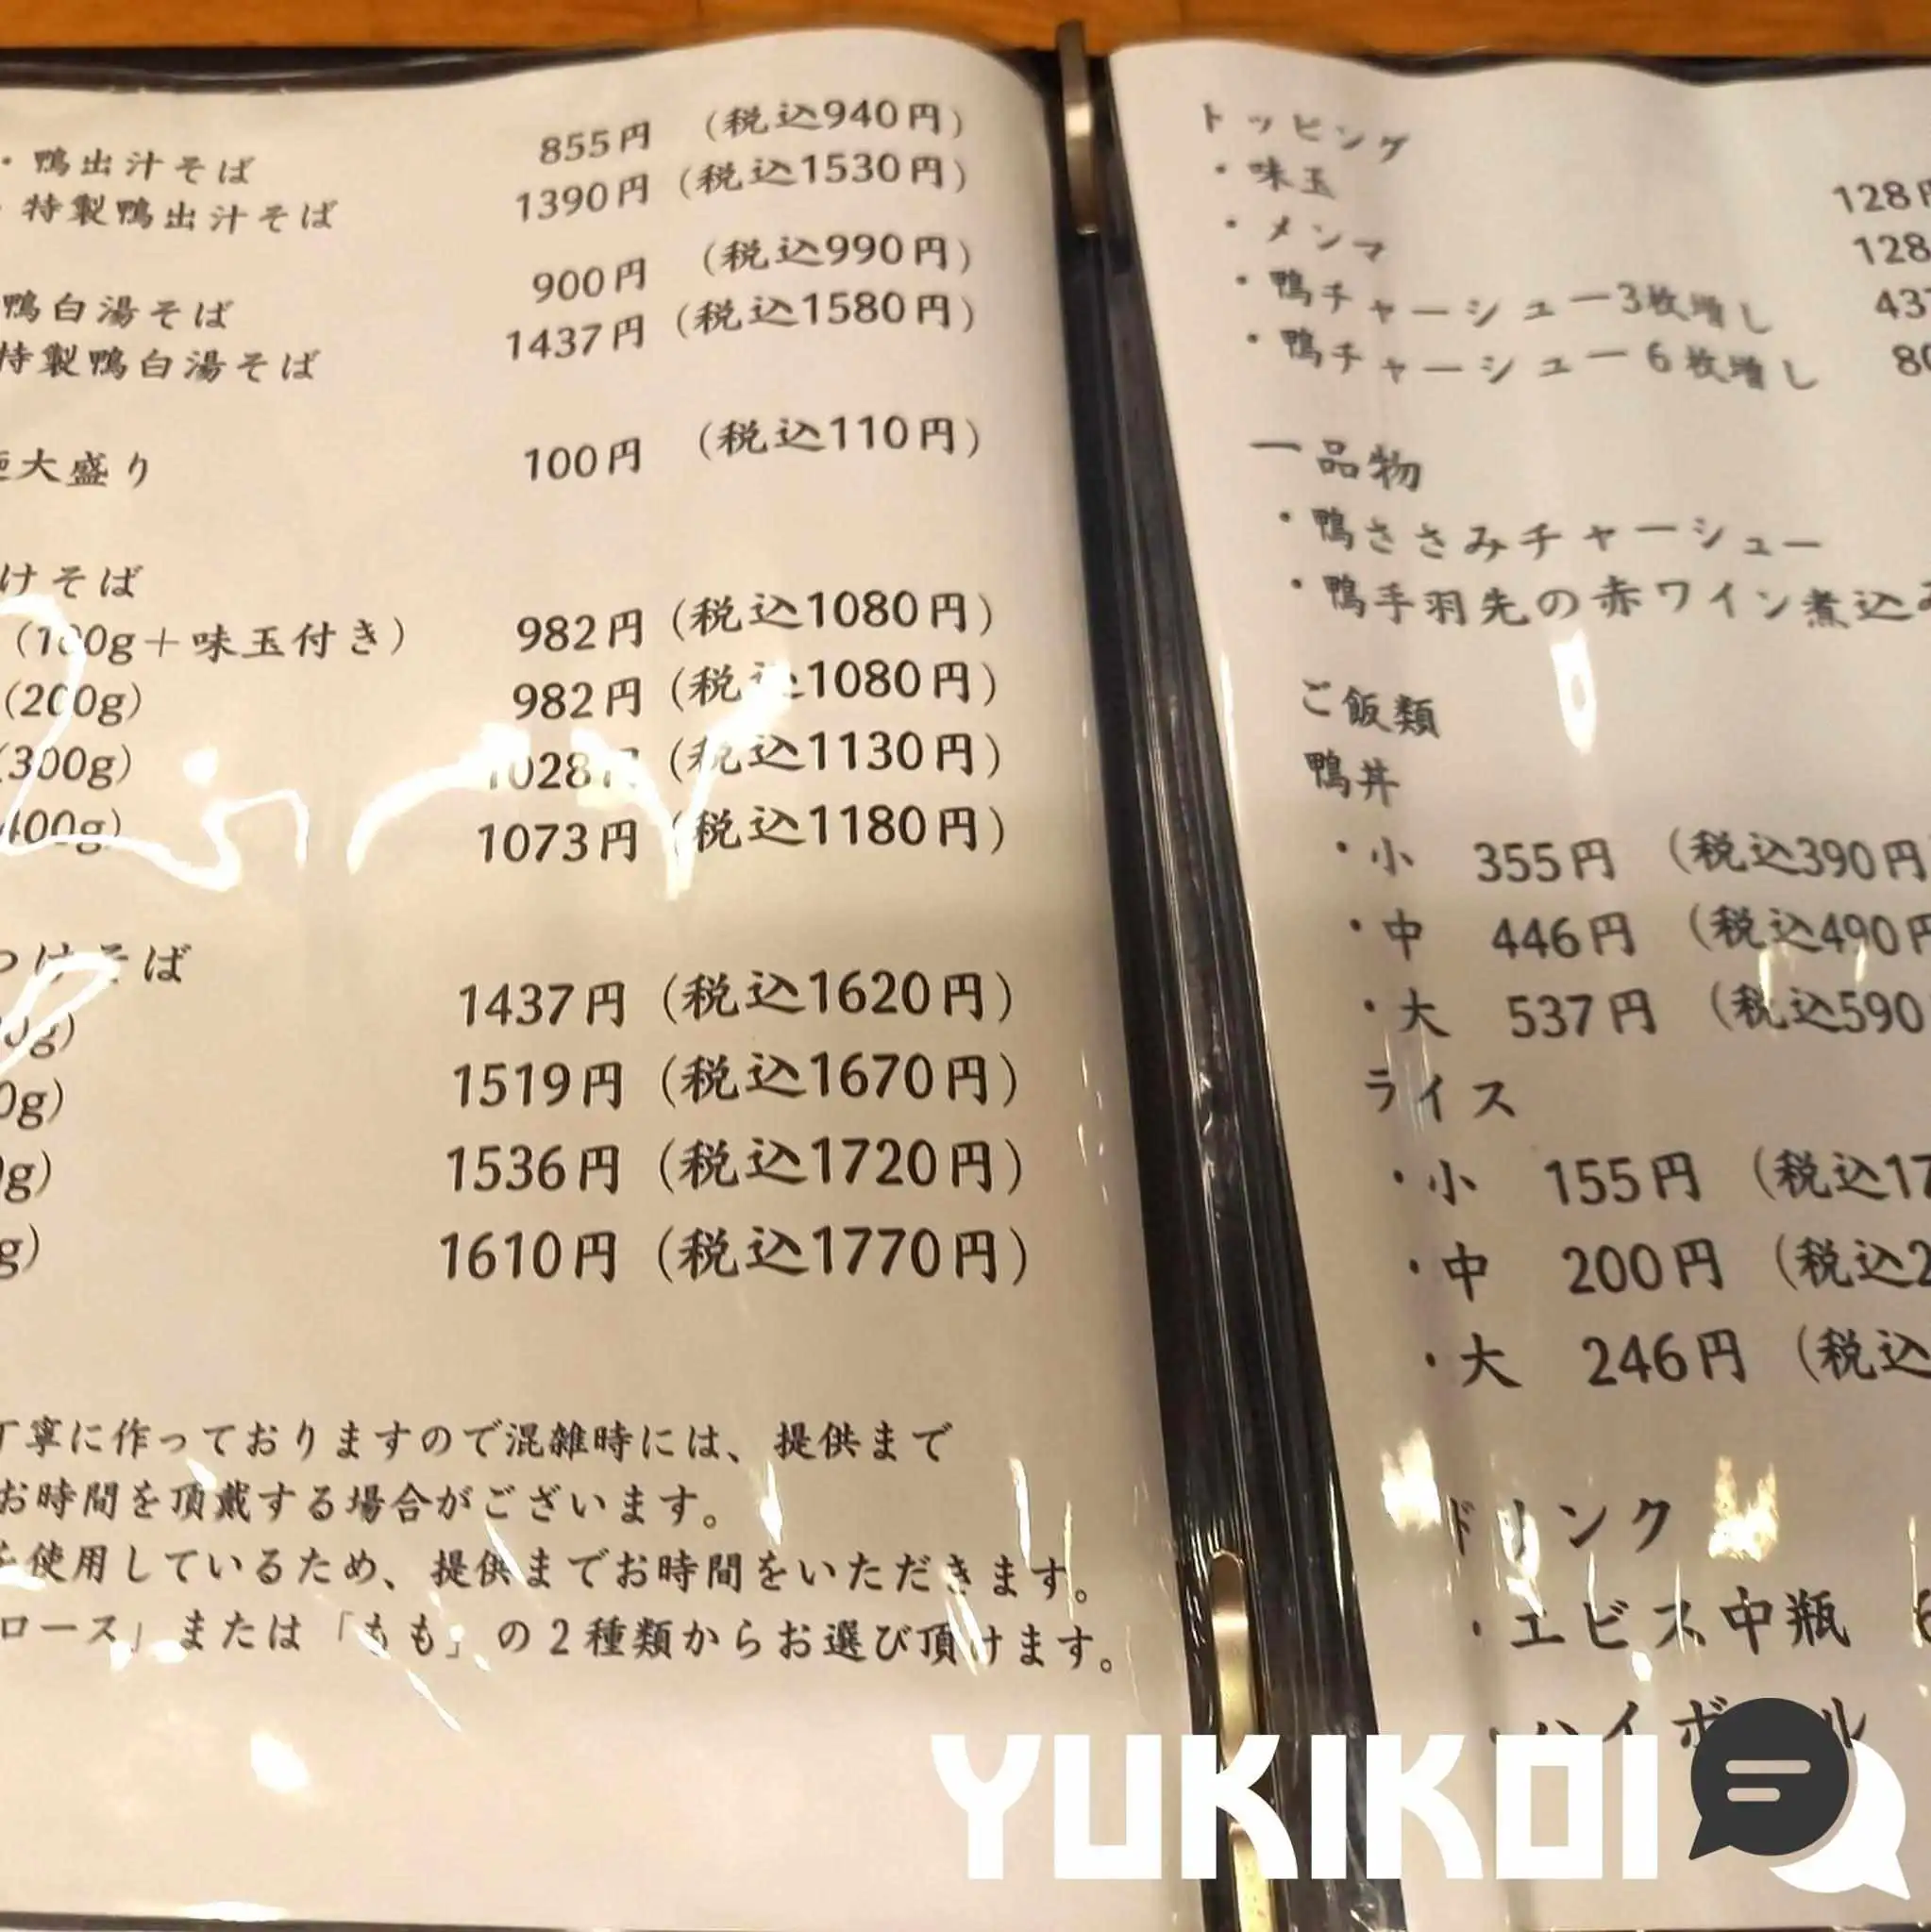 ・鴨出汁そば 855円 (税込940円)
・特製鴨出汁そば 1390円 (税込1530円)
鴨白湯そば 900円 (税込990円)
特製鴨白湯そば 1437円 (税込1580円)
大盛り 100円 (税込110円)
けそば
(100g＋味玉付き) 982円 (税込1080円)
(200g) 982円 (税込1080円)
(300g) 1028円 (税込1130円)
400g) 1073円 (税込1180円)
つけそば
0g) 1437円 (税込1620円)
0g) 1519円 (税込1670円)
g) 1536円 (税込1720円)
g) 1610円 (税込1770円)
丁寧に作っておりますので混雑時には、提供まで
お時間を頂戴する場合がございます。
を使用しているため、提供までお時間をいただきます。
ロース」または「もも」の2種類からお選び頂けます。
トッピング
・味玉 128円
・メンマ 128
・鴨チャーシュー3枚増し 437
・鴨チャーシュー6枚増し
一品物
・鴨ささみチャーシュー
・鴨手羽先の赤ワイン煮込み
ご飯類
鴨丼
・小 355円 (税込390円)
・中 446円 (税込490円
・大 537円 (税込590
ライス
・小 155円 (税込17
・中 200円 (税込2
・大 246円 (税込
ドリンク
・エビス中瓶
・ハイボール
YUKIKOI